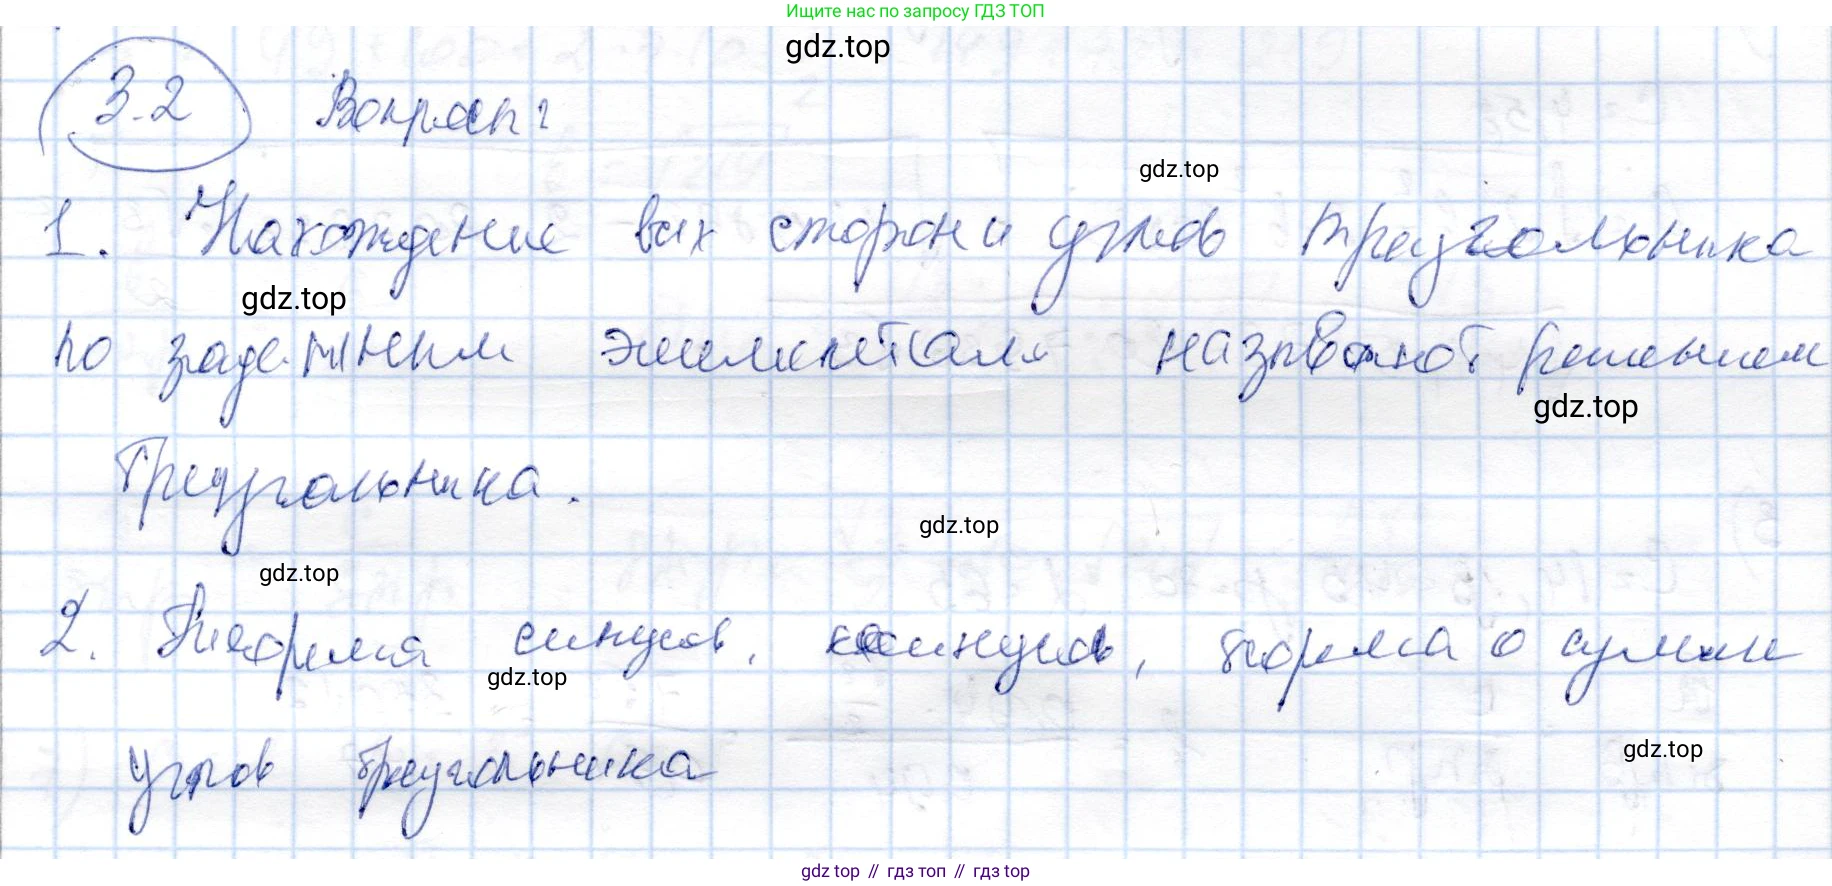 Ищите нас по запросу ГДЗ ТОП
gdz.top
3.2 Вопросы:
gdz.top
1. Нахождение всех сторон и углов треугольника
gdz.top
по заданным элементам называют решением
gdz.top
треугольника.
gdz.top
gdz.top
2. Теорема синусов, косинусов, теорема о сумме
gdz.top
углов треугольника
gdz.top
gdz.top // гдз топ // гдз топ